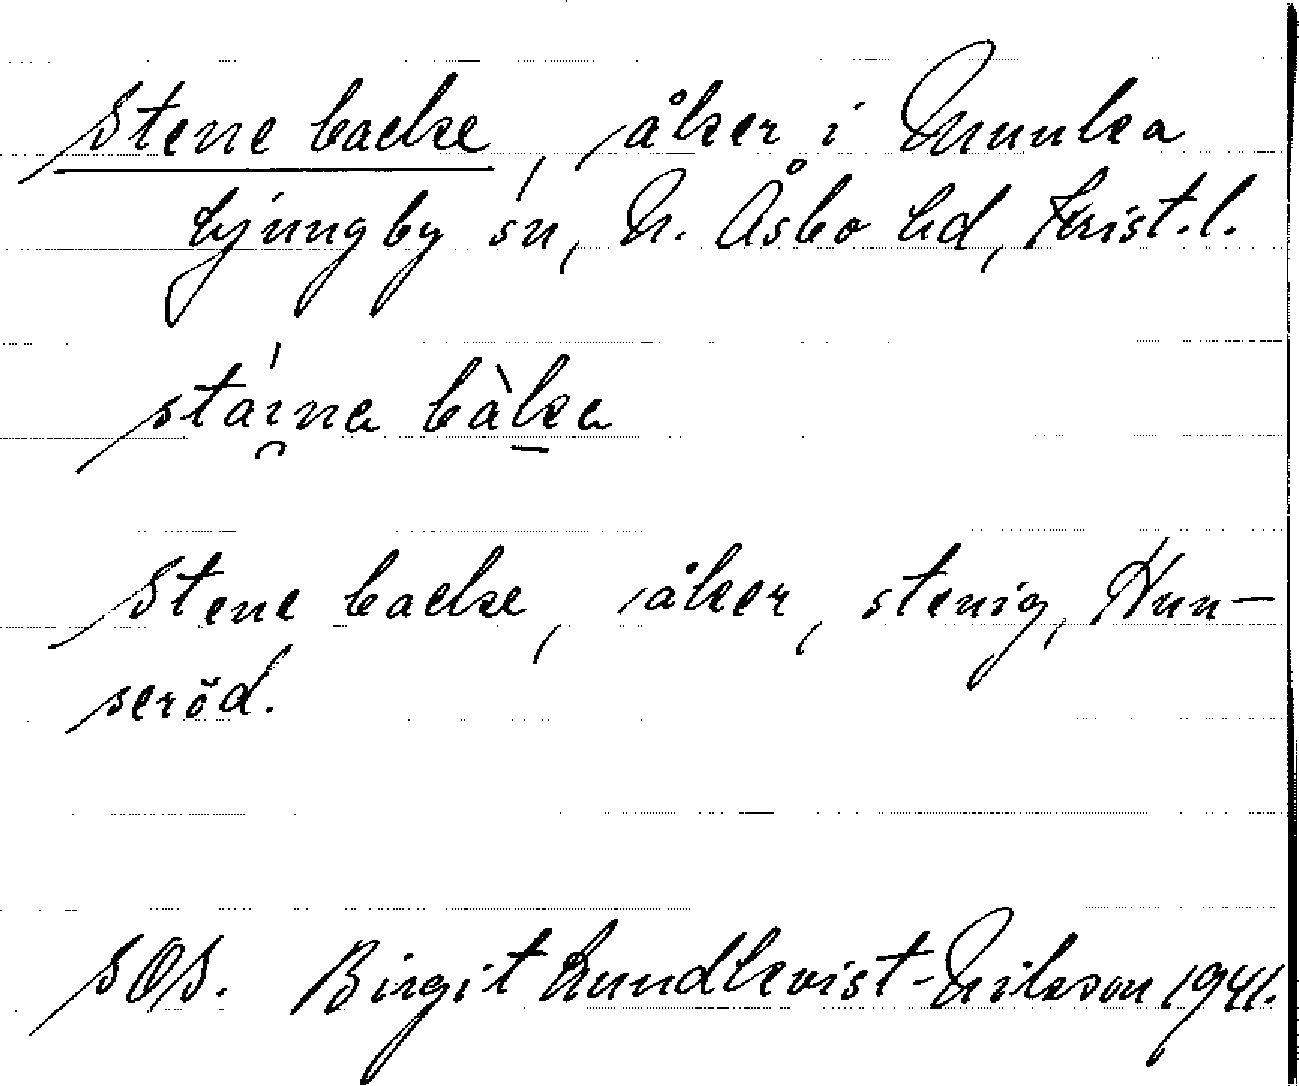 Stene backe, åker i Munka
Ljungby sn, N. Åsbo hd, Krist.l.
stáı̯na bàḵa
Stene backe, åker, stenig, Hun-
seröd.
SOS. Birgit Rundkvist-Nilsson 1941.